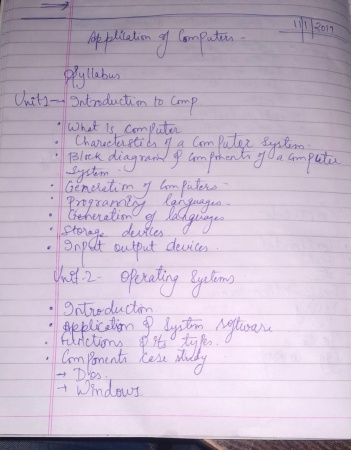 11/1/2019
Application of Computers -
Syllabus
Unit 1 - Introduction to Comp
• What Is computer
• Characteristics of a Computer System -
• Block diagram of components of a computer
System -
• Generation of Computers -
• Programing languages -
• Generation of languages
• Storage devices
• Input output devices
Unit-2- Operating Systems
• Introduction
• Application & System software
• Functions & its types.
• Components case study
→ Dos
→ Windows